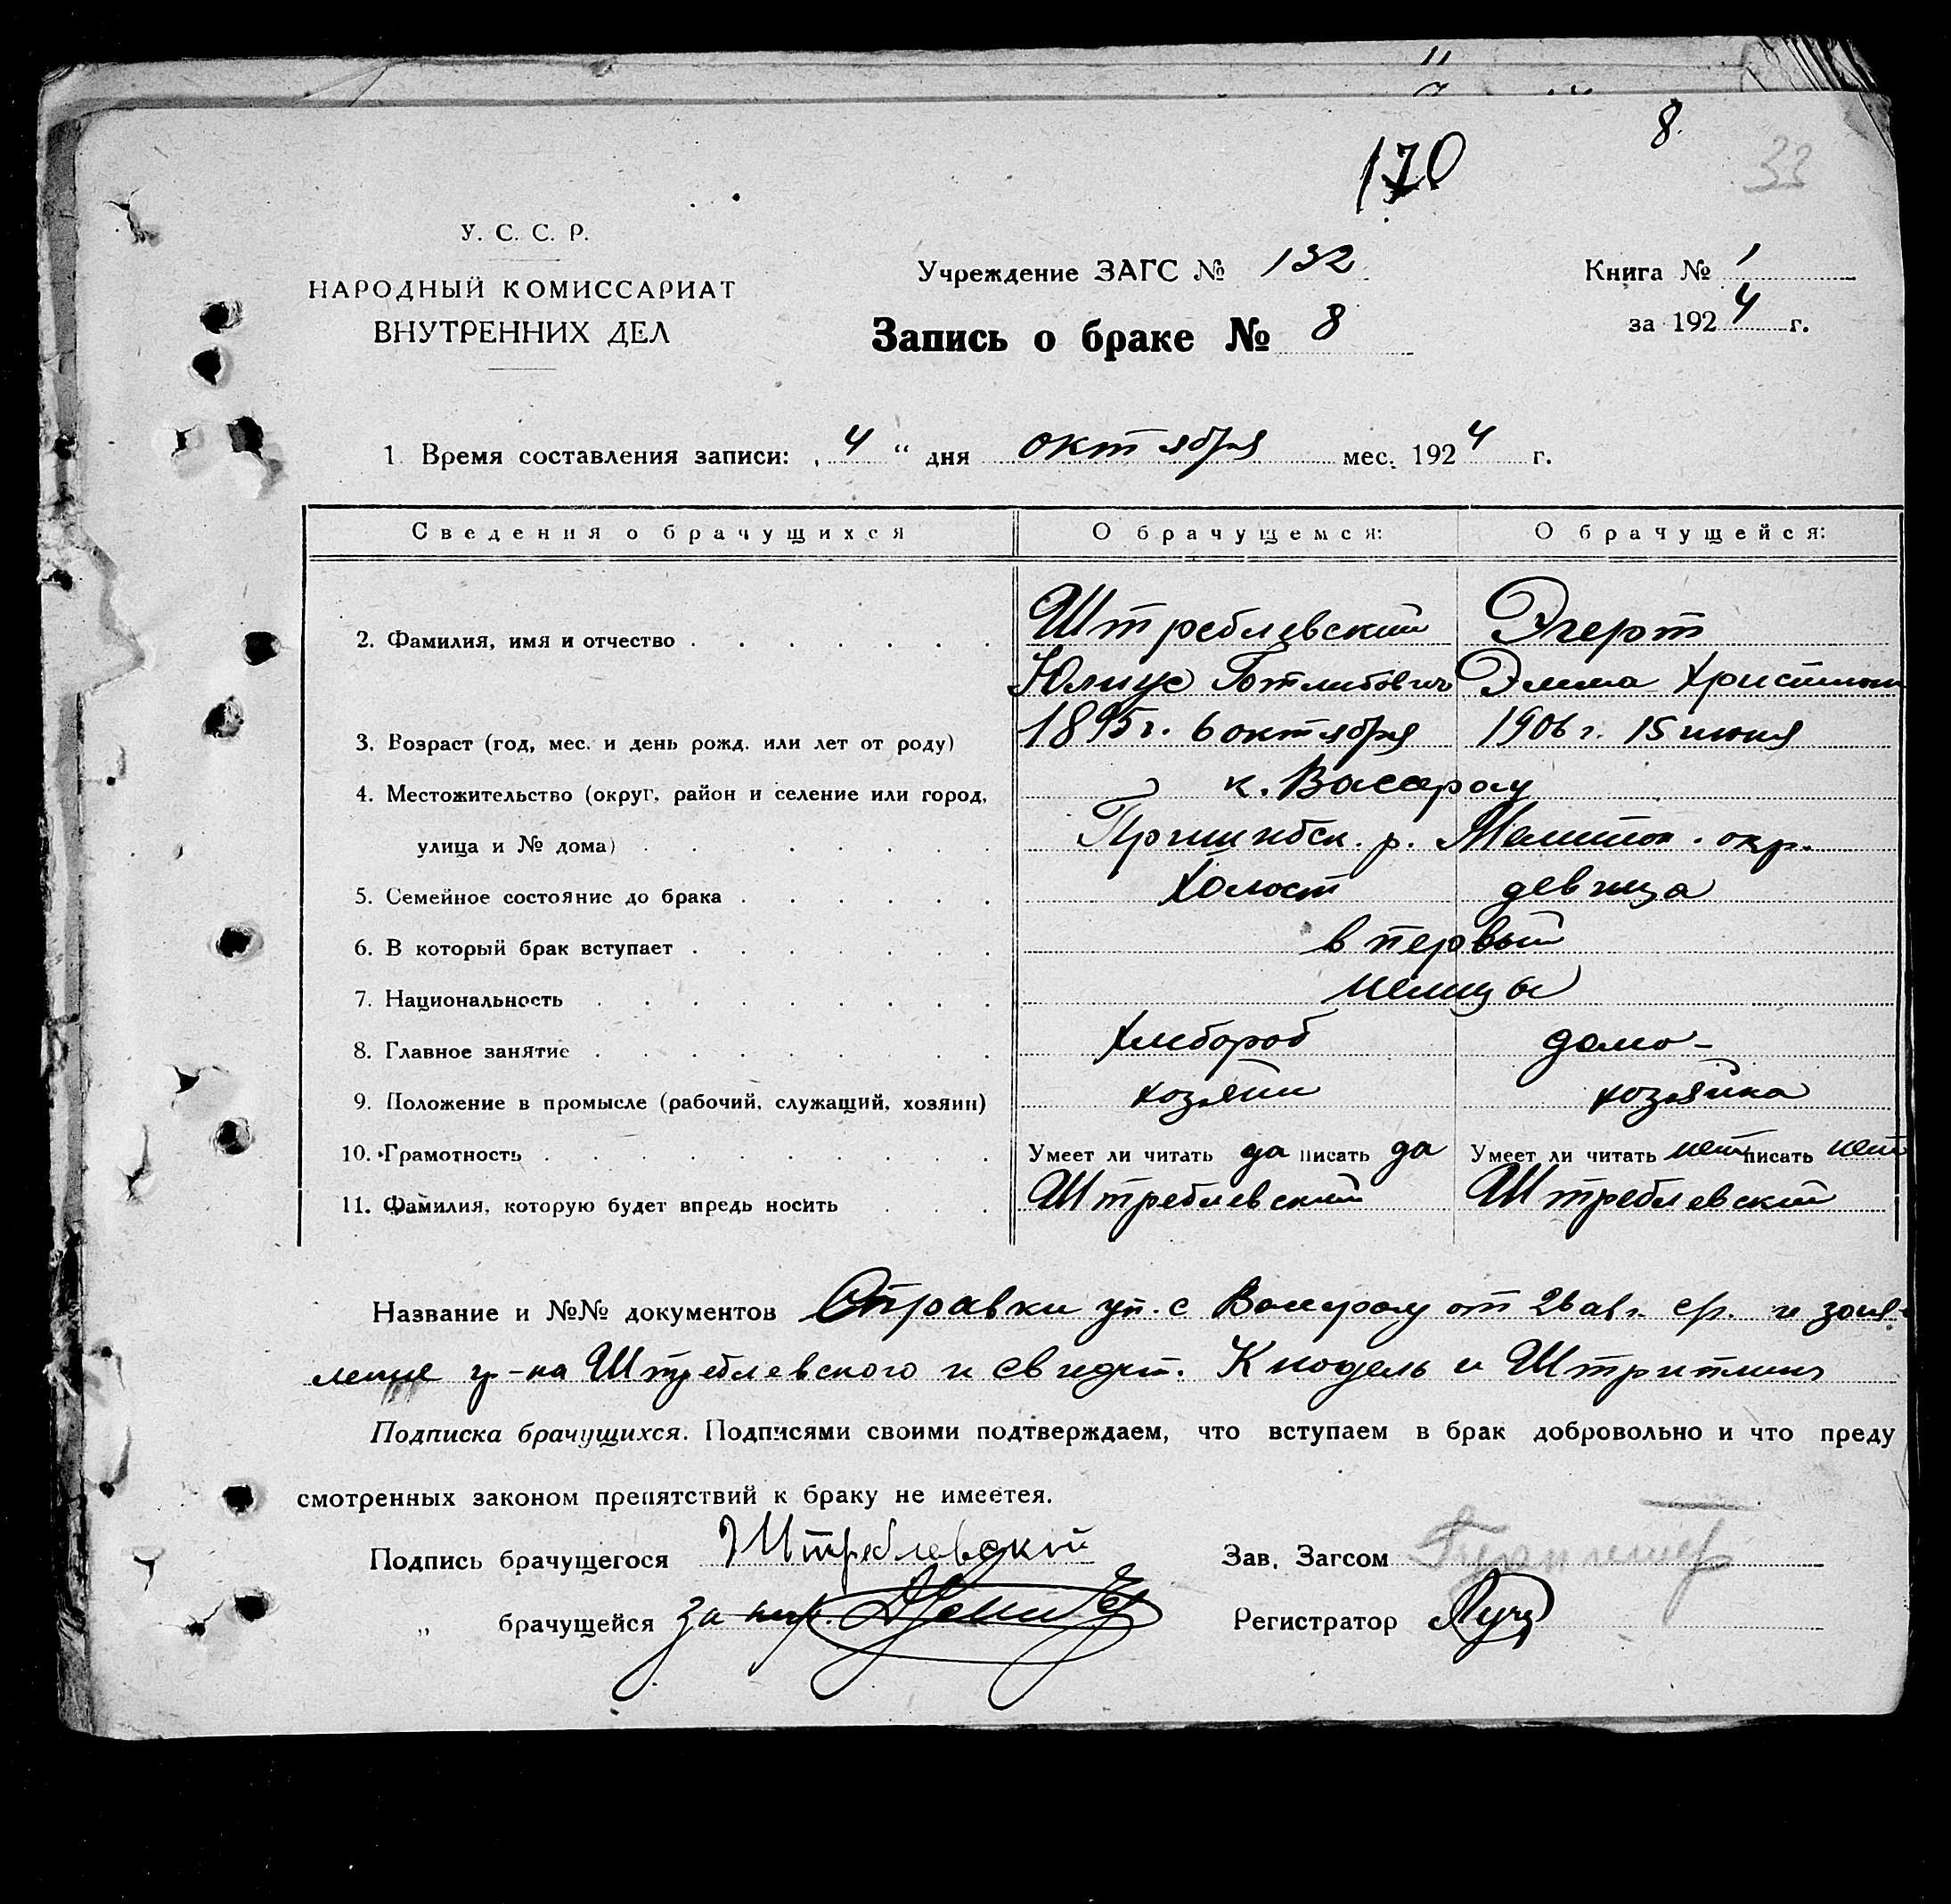 8.
170
33
У. С. С. Р.
НАРОДНЫЙ КОМИССАРИАТ
ВНУТРЕННИХ ДЕЛ
Учреждение ЗАГС № 132
Запись о браке № 8
Книга № 1
за 1924 г.
1. Время составления записи: „4“ дня октября мес. 1924 г.
Сведения о брачущихся О брачущемся: О брачущейся:
2. Фамилия, имя и отчество Штреблевский Эгерт
Юлиус Готлибович Эмма Христиан
3. Возраст (год, мес. и день рожд. или лет от роду) 1895 г. 6 октября 1906 г. 15 июня
4. Местожительство (округ, район и селение или город, к. Вассерау
улица и № дома) Пришибск. р. Мелитоп. окр.
5. Семейное состояние до брака холост девица
6. В который брак вступает в первый
7. Национальность немцы
8. Главное занятие хлебороб домо-
9. Положение в промысле (рабочий, служащий, хозяин) хозяин хозяйка
10. Грамотность Умеет ли читать да писать да Умеет ли читать нет писать нет
11. Фамилия, которую будет впредь носить Штреблевский Штреблевский
Название и №№ документов Справки уп. с Вассерау от 26 авг. с/г. и заяв-
ление гр-на Штреблевского и свидет. Кнодель и Штритлинг
Подписка брачущихся. Подписями своими подтверждаем, что вступаем в брак добровольно и что преду
смотренных законом препятствий к браку не имеется.
Подпись брачущегося Штреблевский Зав. Загсом
„ брачущейся за негр. Регистратор